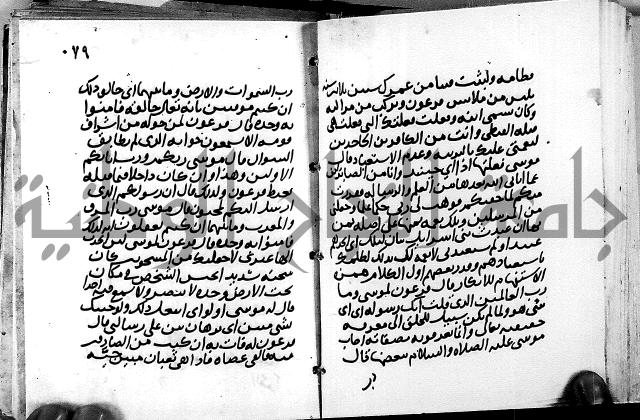 فطامه ولبثت فينا من عمرك سنين ثلاثين سنة
يلبس من ملابس فرعون ويركب من مراكبه
وكان يسمى ابنه وفعلت فعلتك التي فعلت هي
قتله القبطي وانت من الكافرين الجاحدين
لنعمتي عليك بالتربية وعدم الاستعباد قال
موسى فعلتها اذا اي حينئذ وانا من الضالين
عما اتاني الله بعدها من العلم والرسالة ففررت
منكم لما خفتكم فوهب لي ربي حكما علما وجعلني
من المرسلين وتلك نعمة تمنها علي اصله تمن
بها علي ان عبدت بني اسرائيل بيان لتلك اي اتخذتهم
عبيدا ولم تستعبدني لا نعمة لك بذلك لظلمك
باستعبادهم وقدر بعضهم اول الكلام همزة
الاستفهام للانكار قال فرعون لموسى وما
رب العالمين الذي قلت انك رسوله اي اي
شي هو ولما لم يكن سبيل للخلق الى معرفة
حقيقته تعالى وانما يعرفونه بصفاته اجابه
موسى عليه الصلاة والسلام ببعضها قال
رب
٠٧٩
رب السموات والارض وما بينهما اي خالق ذلك
ان كنتم موقنين بانه تعالى خالقه فامنوا
به وحده قال فرعون لمن حوله من اشراف
قومه الا تستمعون جوابه الذي لم يطابق
السوال قال موسى ربكم ورب ابائكم
الاولين وهذا وان كان داخلا فيما قبله
يغيظ فرعون ولذلك قال ان رسولكم الذي
ارسل اليكم لمجنون قال موسى رب المشرق
والمغرب وما بينهما ان كنتم تعقلون انه كذلك
فامنوا به وحده قال فرعون لموسى لئن اتخذت
الها غيري لاجعلنك من المسجونين كان
سجنه شديدا يحبس الشخص في مكان
تحت الارض وحده لا يبصر ولا يسمع فيه احدا
قال له موسى اولو اي اتفعل ذلك ولو جئتك
بشي مبين اي برهان بين على رسالتي قال
فرعون له فات به ان كنت من الصادقين
فيه فالقى عصاه فاذا هي ثعبان مبين حية
جامعة الملك سعود